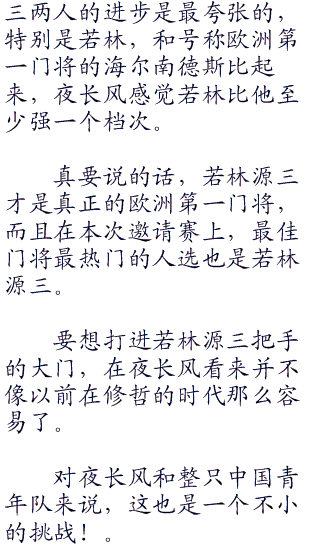 三两人的进步是最夸张的，
特别是若林，和号称欧洲第
一门将的海尔南德斯比起
来，夜长风感觉若林比他至
少强一个档次。
真要说的话，若林源三
才是真正的欧洲第一门将，
而且在本次邀请赛上，最佳
门将最热门的人选也是若林
源三。
要想打进若林源三把手
的大门，在夜长风看来并不
像以前在修哲的时代那么容
易了。
对夜长风和整只中国青
年队来说，这也是一个不小
的挑战！。